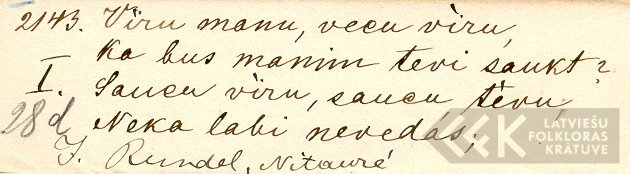 2143. Vīru manu, vecu vīru,
Kā bus manim tevi saukt?
I. Saucu vīru, saucu tēvu,
28d Neka labi nevedās;
J. Rundel, Nītaurē
LATVIEŠU
FOLKLORAS
KRĀTUVE